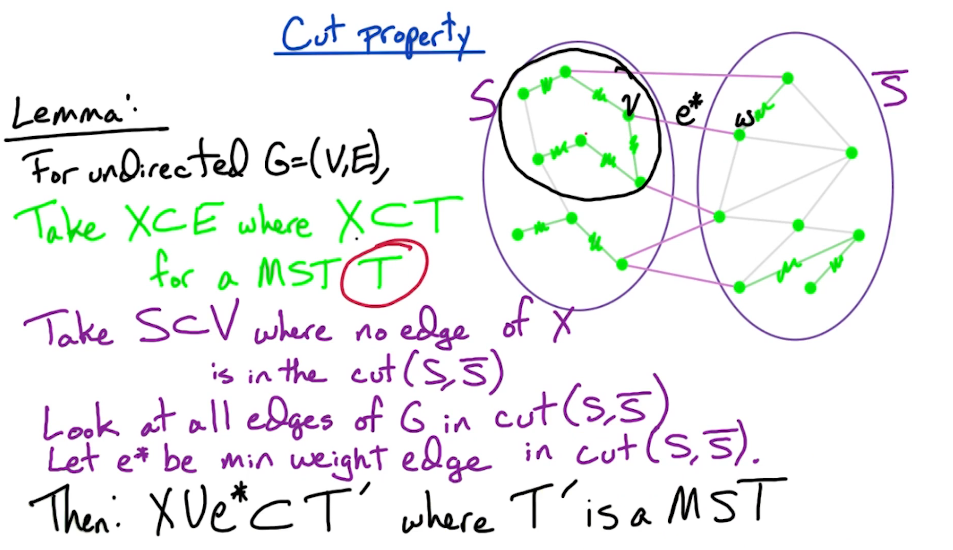 Cut property
Lemma:
For undirected G=(V,E),
Take X⊂E where X⊂T
for a MST T
Take S⊂V where no edge of X
is in the cut(S,S̅)
Look at all edges of G in cut(S,S̅)
Let e* be min weight edge in cut(S,S̅).
Then: X∪e*⊂T′ where T′ is a MST
S
V
e*
w
S̅